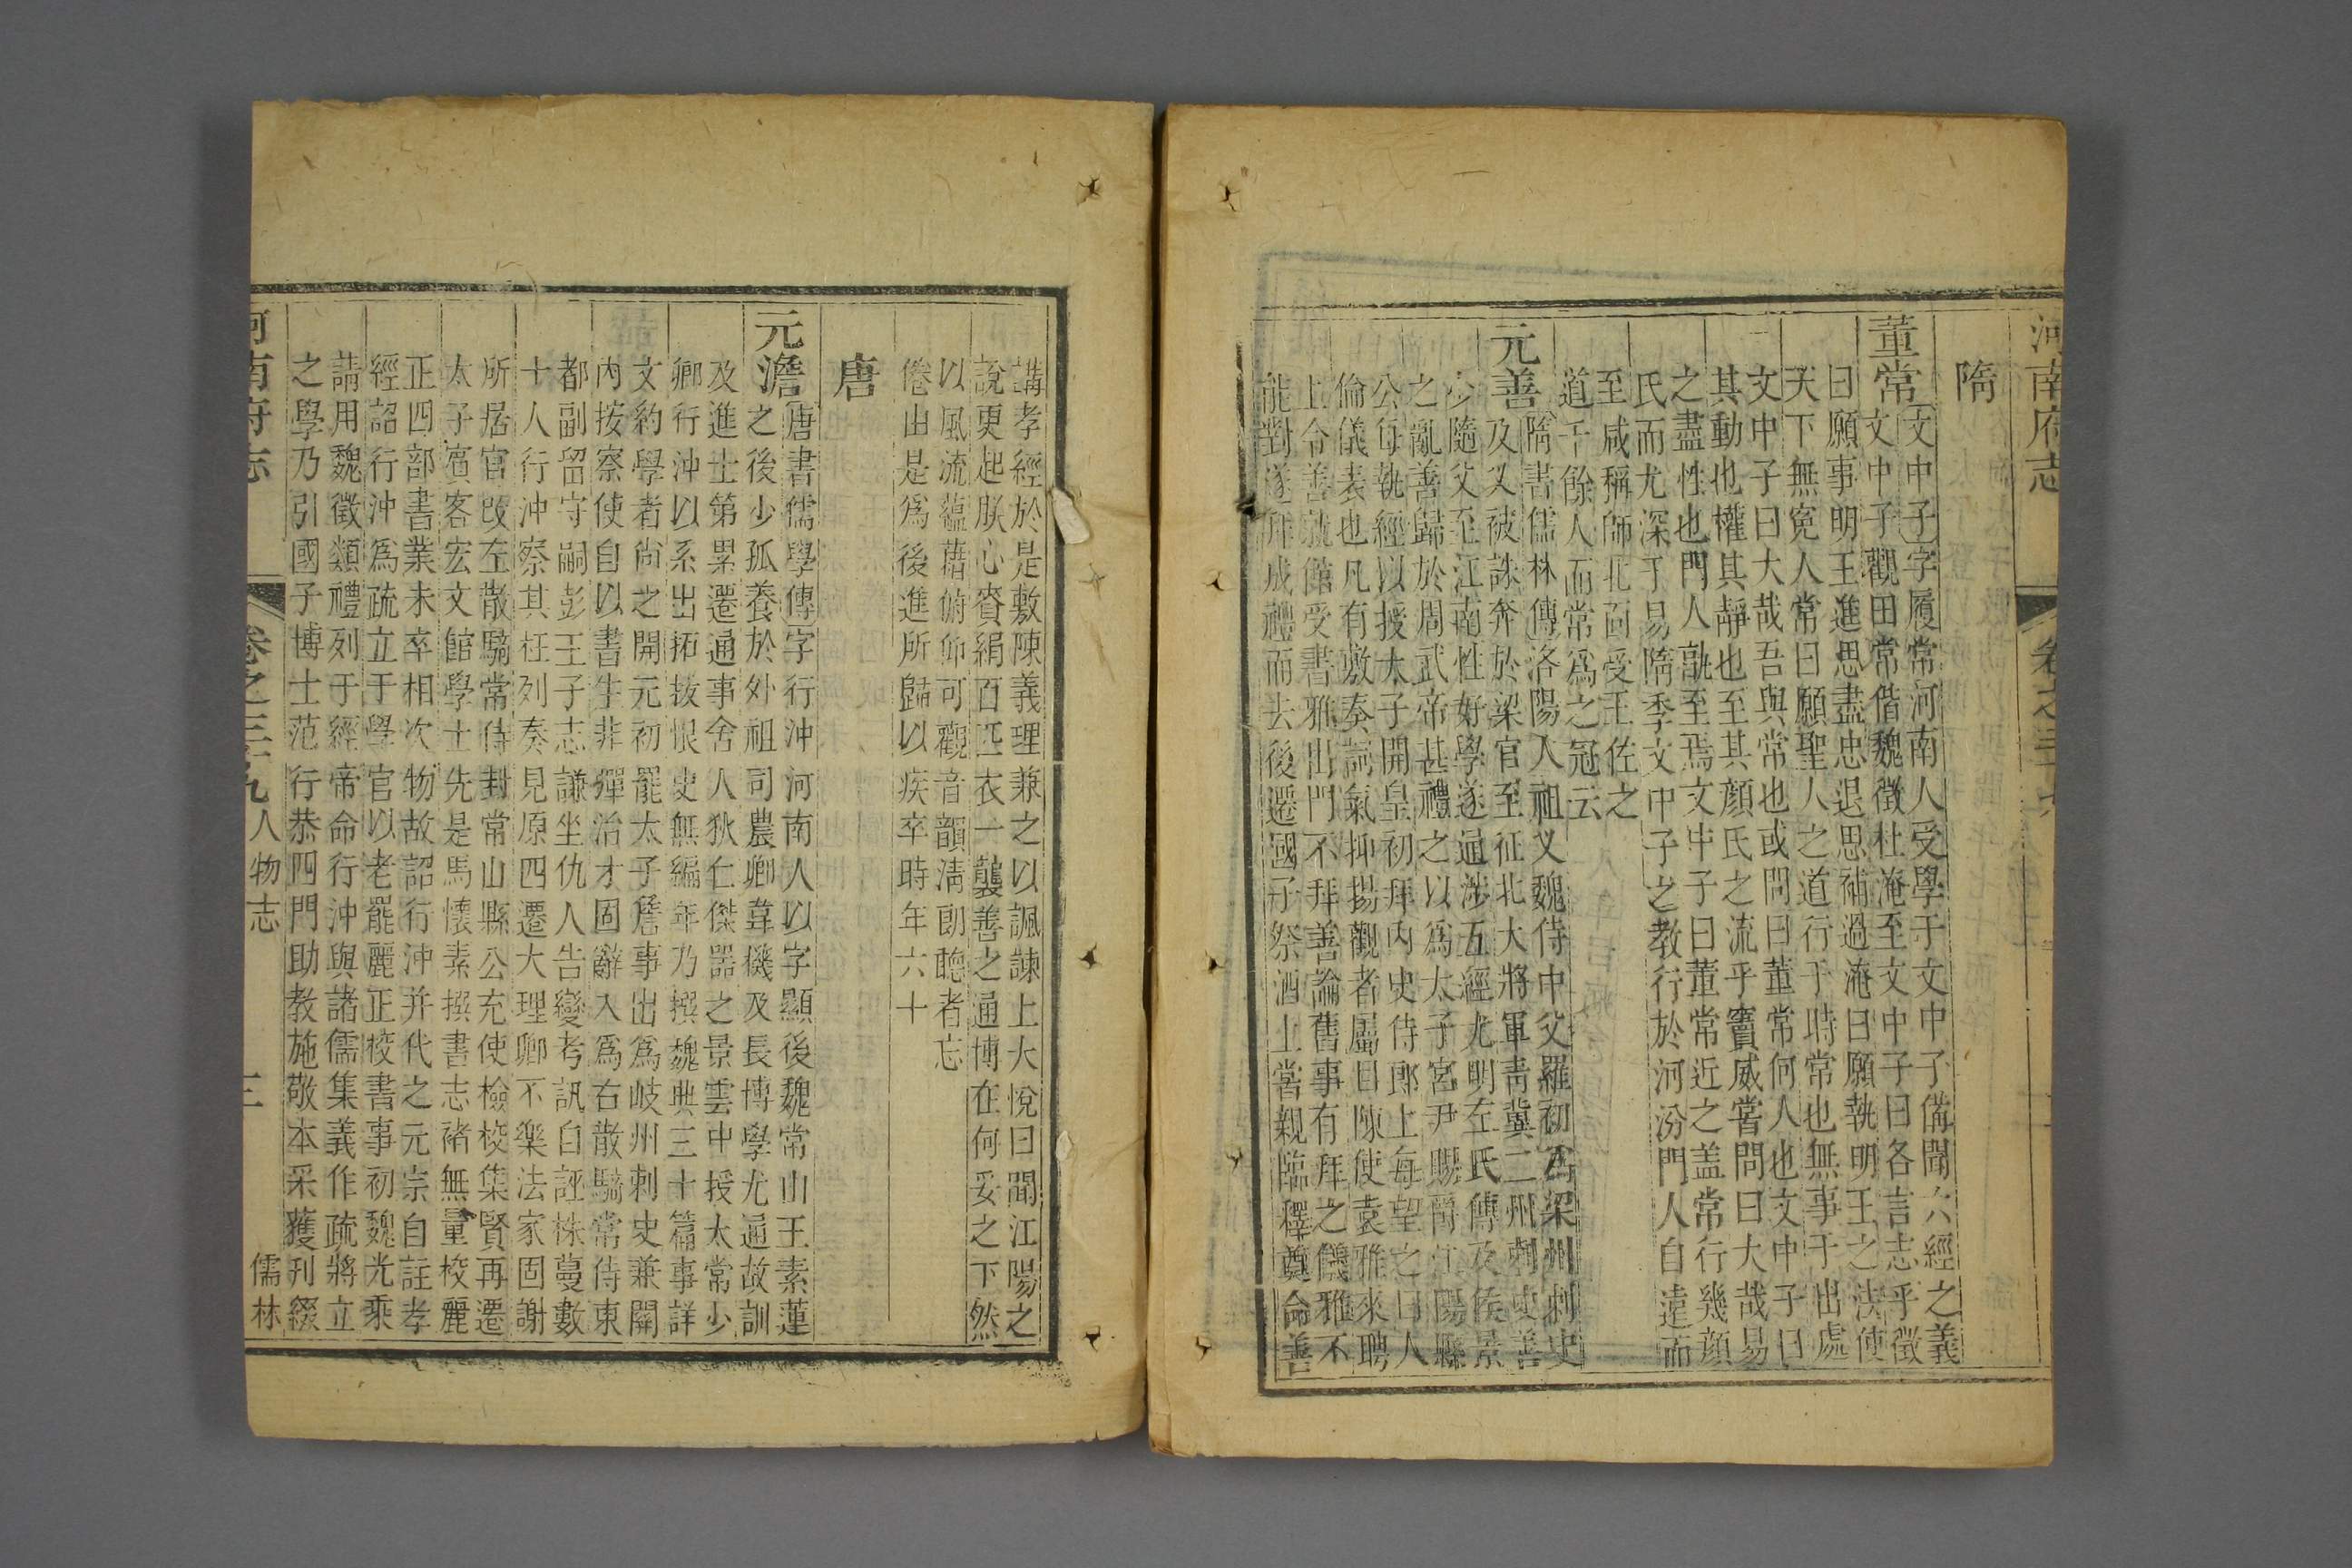 河南府志
卷之三十九
隋
董常
文中子字履常河南人受學于文中子備聞六經之義
文中子觀田常偕魏徵杜淹至文中子曰各言志乎徵
曰願事明王進思盡忠退思補過淹曰願執明王之法使
天下無寃人常曰願聖人之道行于時常也無事于出處
文中子曰大哉吾與常也或問曰董常何人也文中子曰
其動也權其靜也至其顔氏之流乎竇威嘗問曰大哉易
之盡性也門人孰至焉文中子曰董常近之盖常行幾顔
氏而尤深于易隋季文中子之教行於河汾門人自遠而
至咸稱師北面受王佐之
道千餘人而常爲之冠云
元善
隋書儒林傳洛陽人祖义魏侍中父羅初爲梁州刺史
及义被誅奔於梁官至征北大將軍青冀二州刺史善
少隨父至江南性好學遂通涉五經尤明左氏傳及侯景
之亂善歸於周武帝甚禮之以爲太子宮尹賜爵江陽縣
公每執經以授太子開皇初拜內史侍郎上每望之曰人
倫儀表也凡有敷奏詞氣抑揚觀者屬目陳使袁雅來聘
上令善就館受書雅出門不拜善論舊事有拜之儀雅不
能對遂拜成禮而去後遷國子祭酒上嘗親臨釋奠命善
講孝經於是敷陳義理兼之以諷諫上大悅曰聞江陽之
說更起朕心賚絹百疋衣一襲善之通博在何妥之下然
以風流蘊藉俯仰可觀音韻淸朗聽者忘
倦由是爲後進所歸以疾卒時年六十
唐
元澹
唐書儒學傳字行沖河南人以字顯後魏常山王素蓮
之後少孤養於外祖司農卿韋機及長博學尤通故訓
及進士第累遷通事舍人狄仁傑器之景雲中授太常少
卿行沖以系出拓拔恨史無編年乃撰魏典三十篇事詳
文約學者尙之開元初罷太子詹事出爲岐州刺史兼關
內按察使自以書生非彈治才固辭入爲右散騎常侍東
都副留守嗣彭王子志謙坐仇人告變考訊自誣株蔓數
十人行沖察其枉列奏見原四遷大理卿不樂法家固謝
所居官改左散騎常侍封常山縣公充使檢校集賢再遷
太子賓客宏文館學士先是馬懷素撰書志褚無量校麗
正四部書業未卒相次物故詔行沖并代之元宗自註孝
經詔行沖爲疏立于學官以老罷麗正校書事初魏光乘
請用魏徵類禮列于經帝命行沖與諸儒集義作疏將立
之學乃引國子博士范行恭四門助教施敬本采獲刊綴
河南府志
卷之三十九人物志
三
儒林